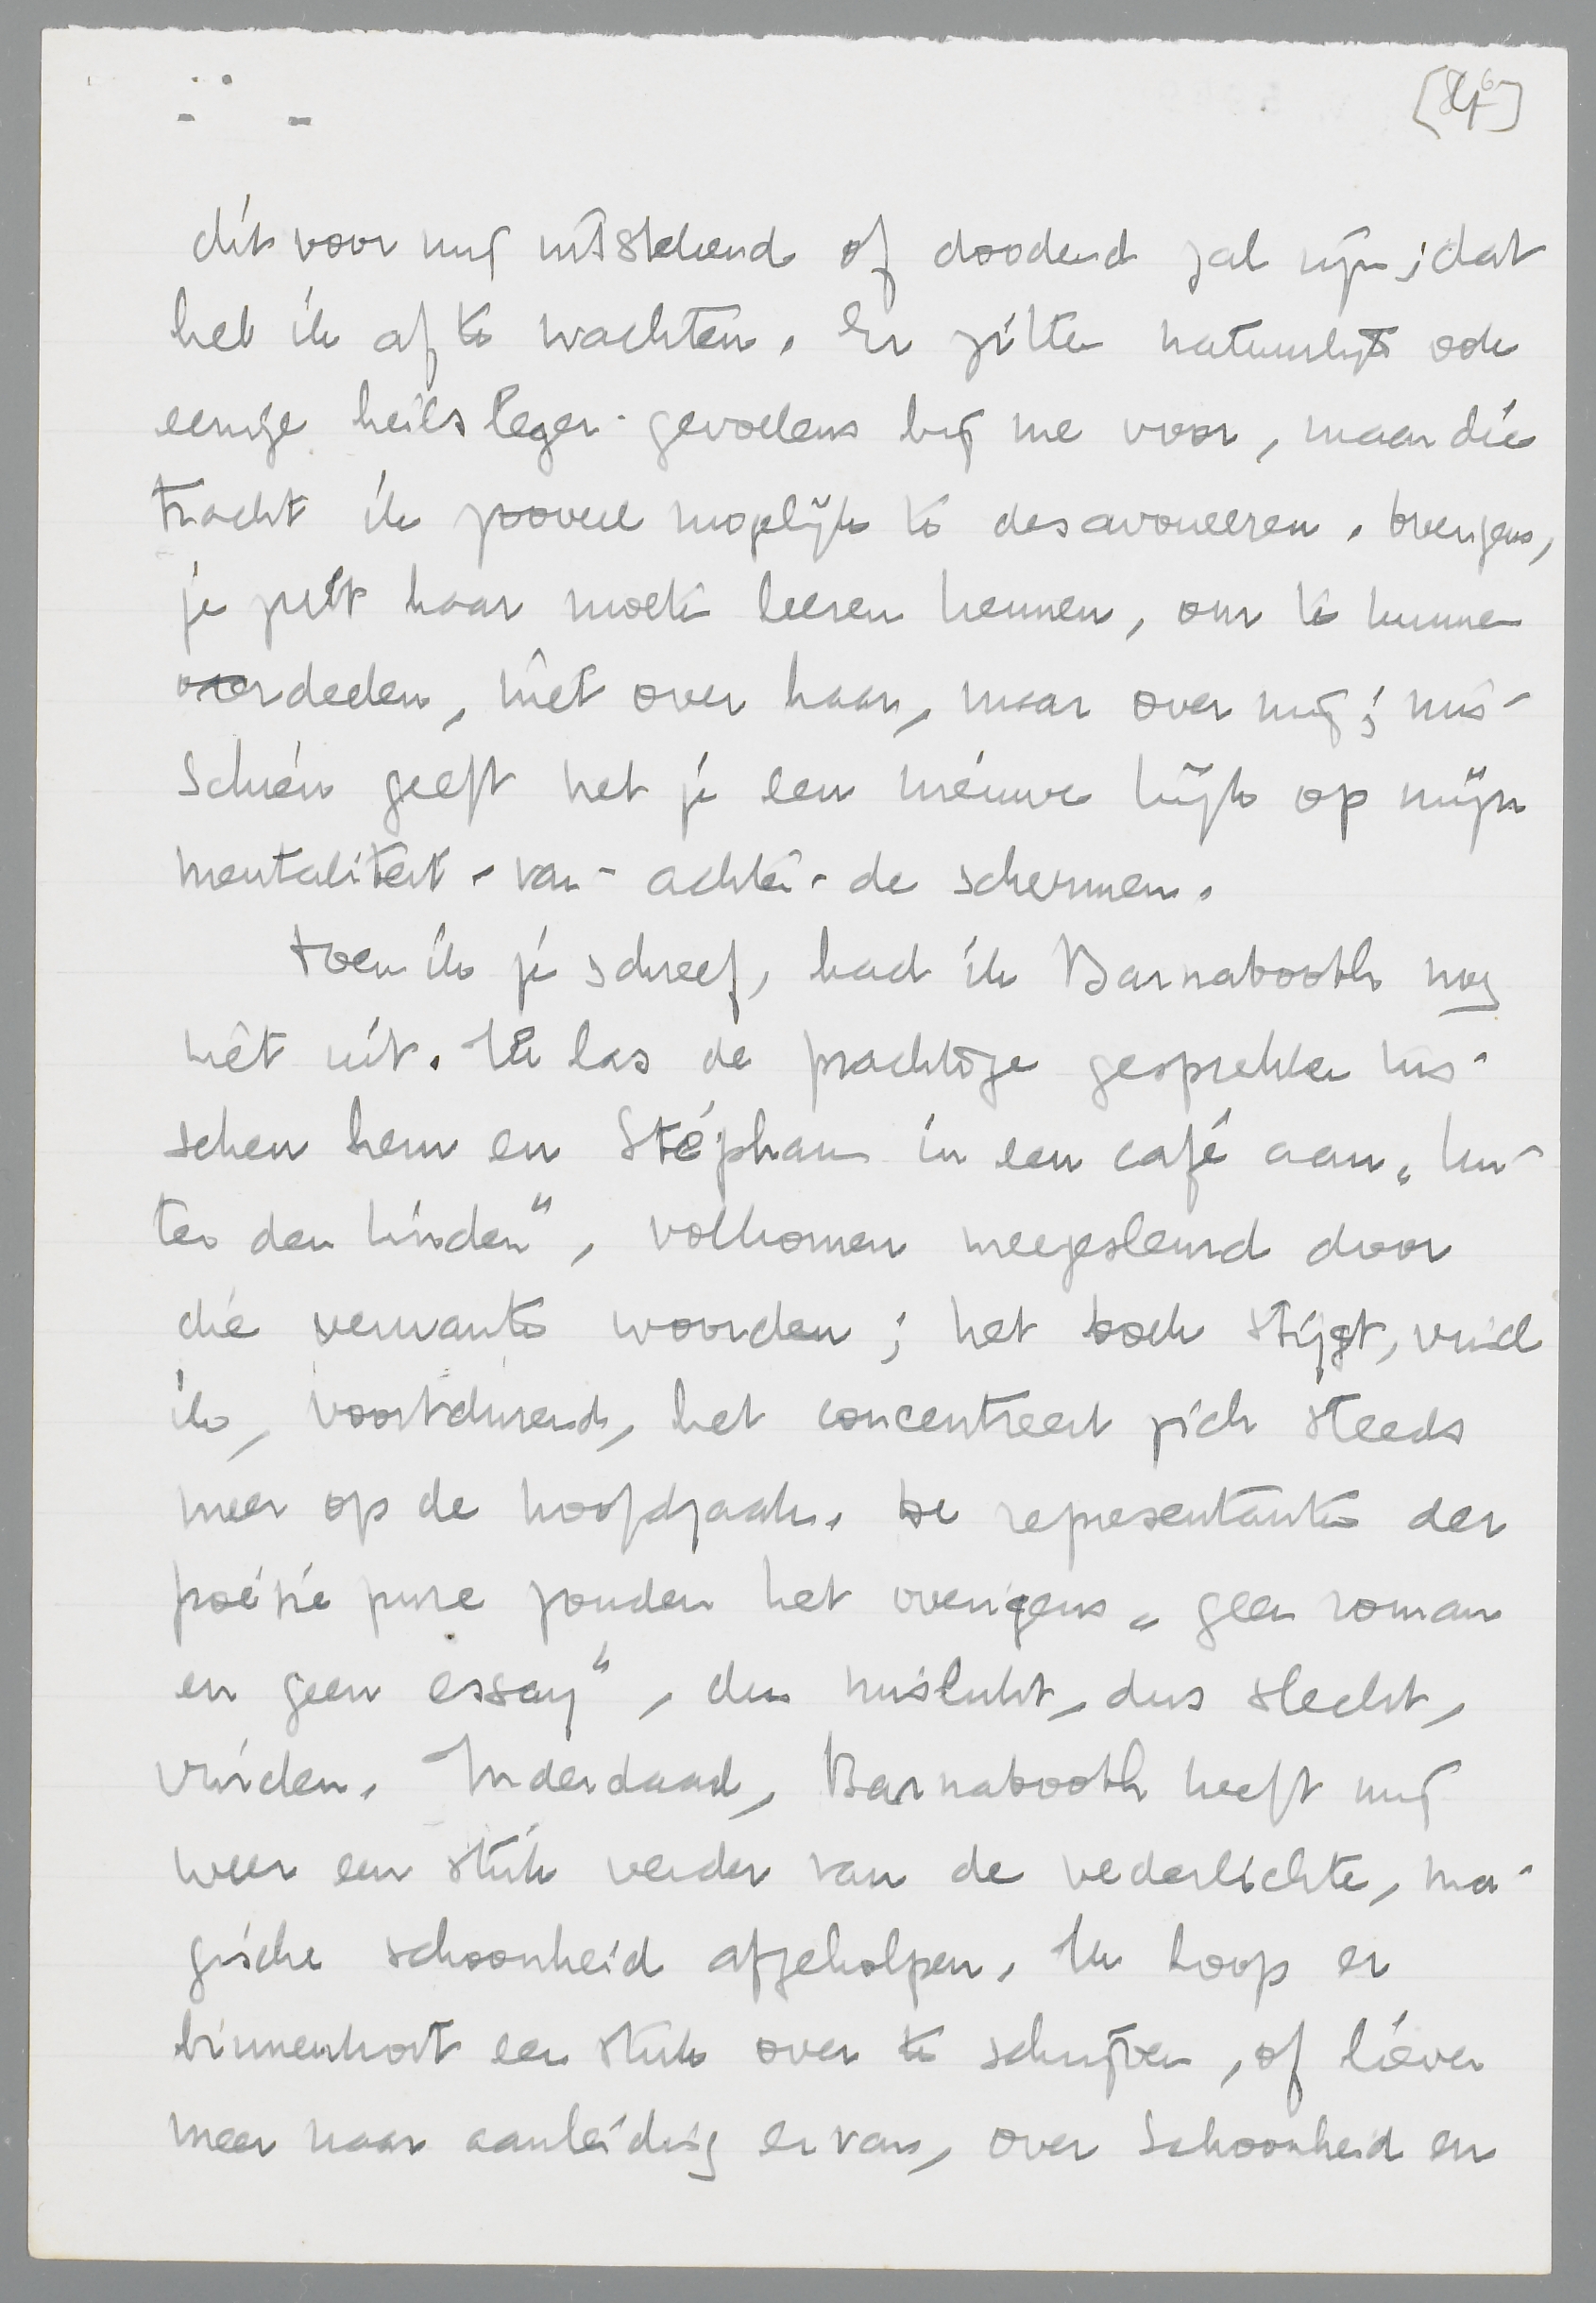 [846]
dit voor mij uitstekend of doodend zal zijn; dat
heb ik af te wachten. Er zitten natuurlijk ook
eenige heilsleger-gevoelens bij me voor, maar die
tracht ik zooveel mogelijk te desavoueeren. Overigens,
je zult haar moeten leeren kennen, om te kunnen
oordeelen, niet over haar, maar over mij; mis-
schien geeft het je een nieuwe kijk op mijn
mentaliteit-van-achter-de schermen.
Toen ik je schreef, had ik Barnabooth nog
niet uit. Ik las de prachtige gesprekken tus-
schen hem en Stéphane in een café aan „Un-
ter den Linden”, volkomen meegesleurd door
die verwante woorden; het boek stijgt, vind
ik, voortdurend, het concentreert zich steeds
meer op de hoofdzaak. De representanten der
poézie pure zouden het overigens „geen roman
en geen essay”, dus mislukt, dus slecht,
vinden. Inderdaad, Barnabooth heeft mij
weer een stuk verder van de vederlichte, ma-
gische schoonheid afgeholpen. Ik hoop er
binnenkort een stuk over te schrijven, of liever
meer naar aanleiding ervan, over schoonheid en